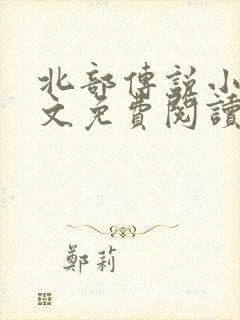 北部傳說小
文免費閱讀
鄭莉